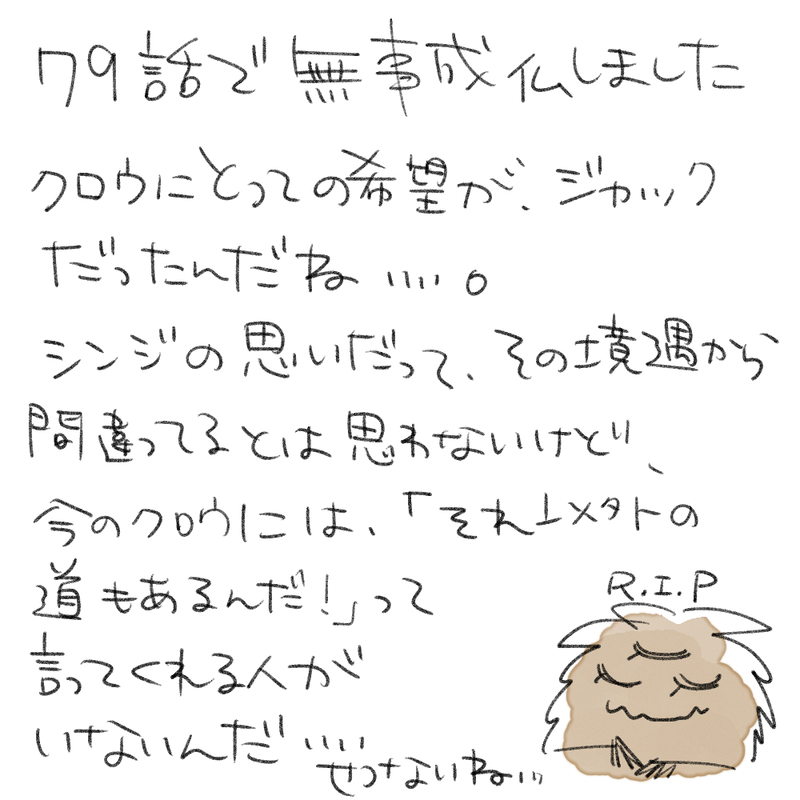 79話で無事成仏しました
クロウにとっての希望が、ジャック
だったんだね‥‥。
シンジの思いだって、その境遇から
間違ってるとは思わないけど、
今のクロウには、「それ以外の
道もあるんだ!」って
言ってくれる人が
いないんだ‥‥
せつないね…
R.I.P